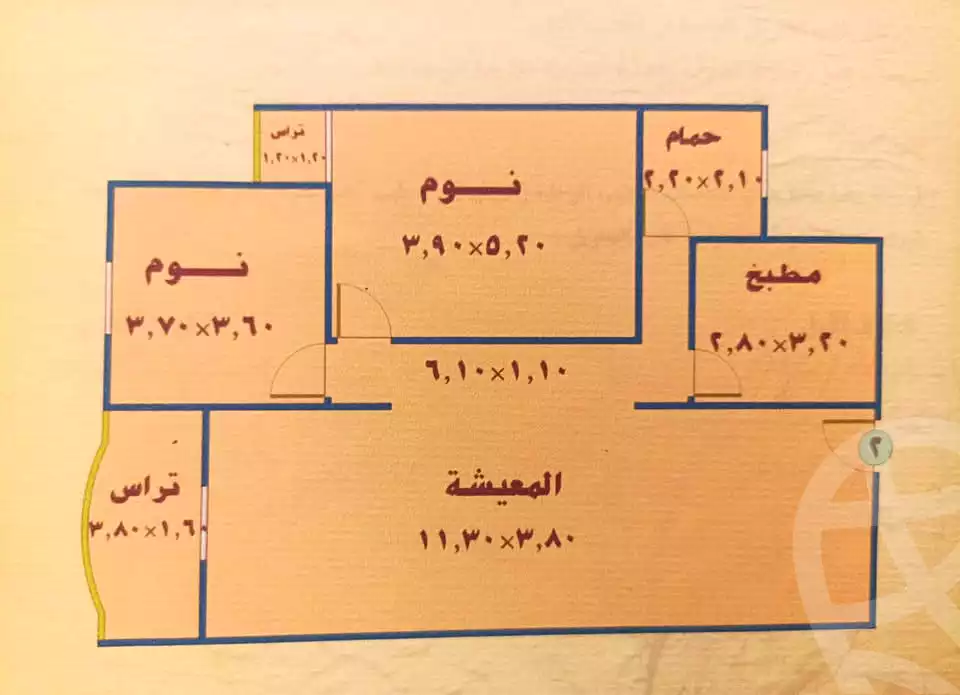 تراس
١,٢٠×١,٢٠
حمام
٢,٢٠×٢,١٠
نـــوم
٣,٩٠×٥,٢٠
نـــوم
٣,٧٠×٣,٦٠
مطبخ
٢,٨٠×٣,٢٠
٦,١٠×١,١٠
٢
المعيشة
١١,٣٠×٣,٨٠
تراس
٣,٨٠×١,٦٠